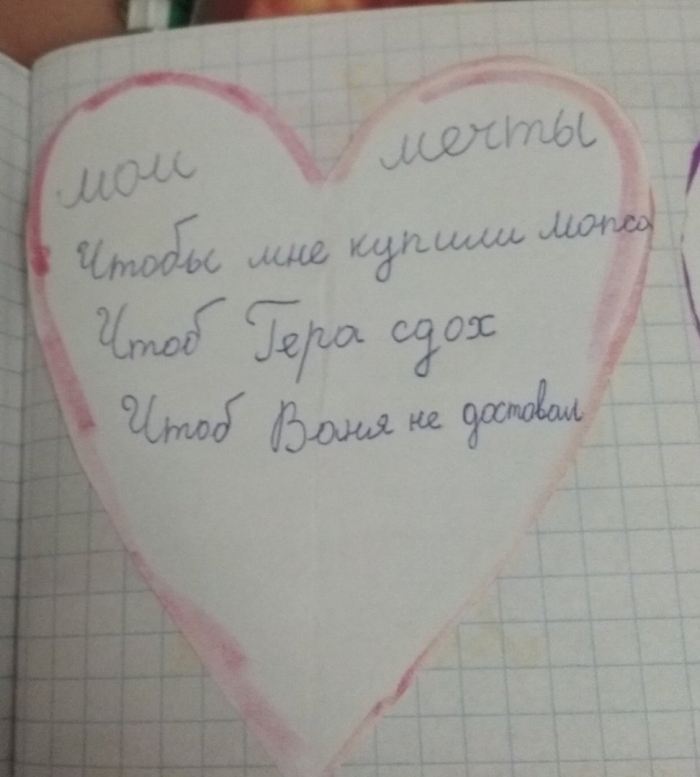 мои мечты
Чтобы мне купили мопса
Чтоб Гера сдох
Чтоб Ваня не доставал